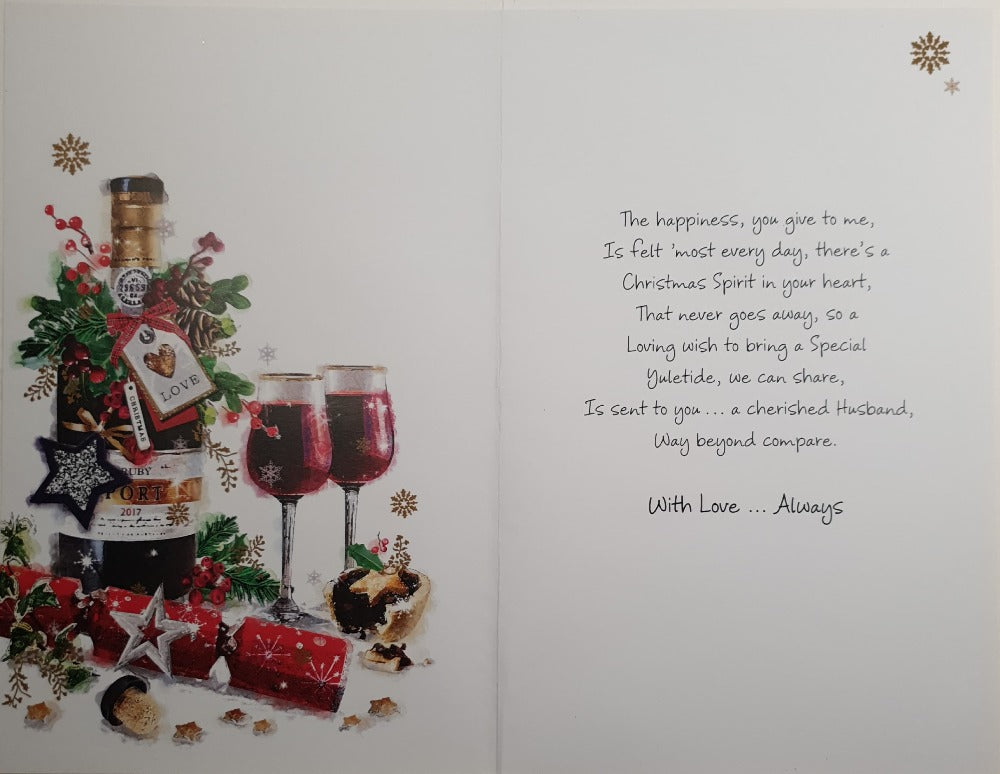 LOVE
CHRISTMAS
RUBY
PORT
2017
The happiness, you give to me,
Is felt 'most every day, there's a
Christmas Spirit in your heart,
That never goes away, so a
Loving wish to bring a Special
Yuletide, we can share,
Is sent to you ... a cherished Husband,
Way beyond compare.
With Love ... Always